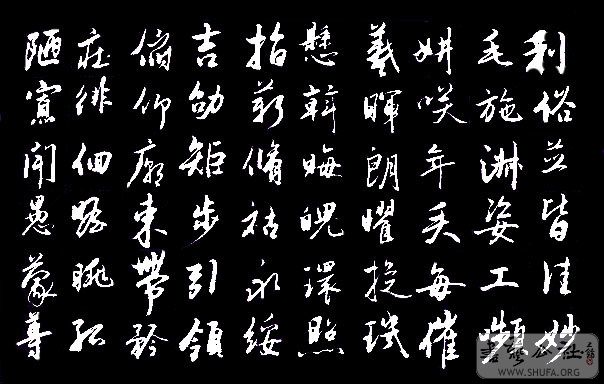 利俗並皆佳妙
毛施淑姿工顰
妍咲年矢每催
羲暉朗曜璇璣
懸斡晦魄環照
指薪脩祜永綏
吉劭矩步引領
俯仰廟束帶矜
莊徘徊瞻眺孤
陋寡聞愚蒙等
書藝公社
WWW.SHUFA.ORG